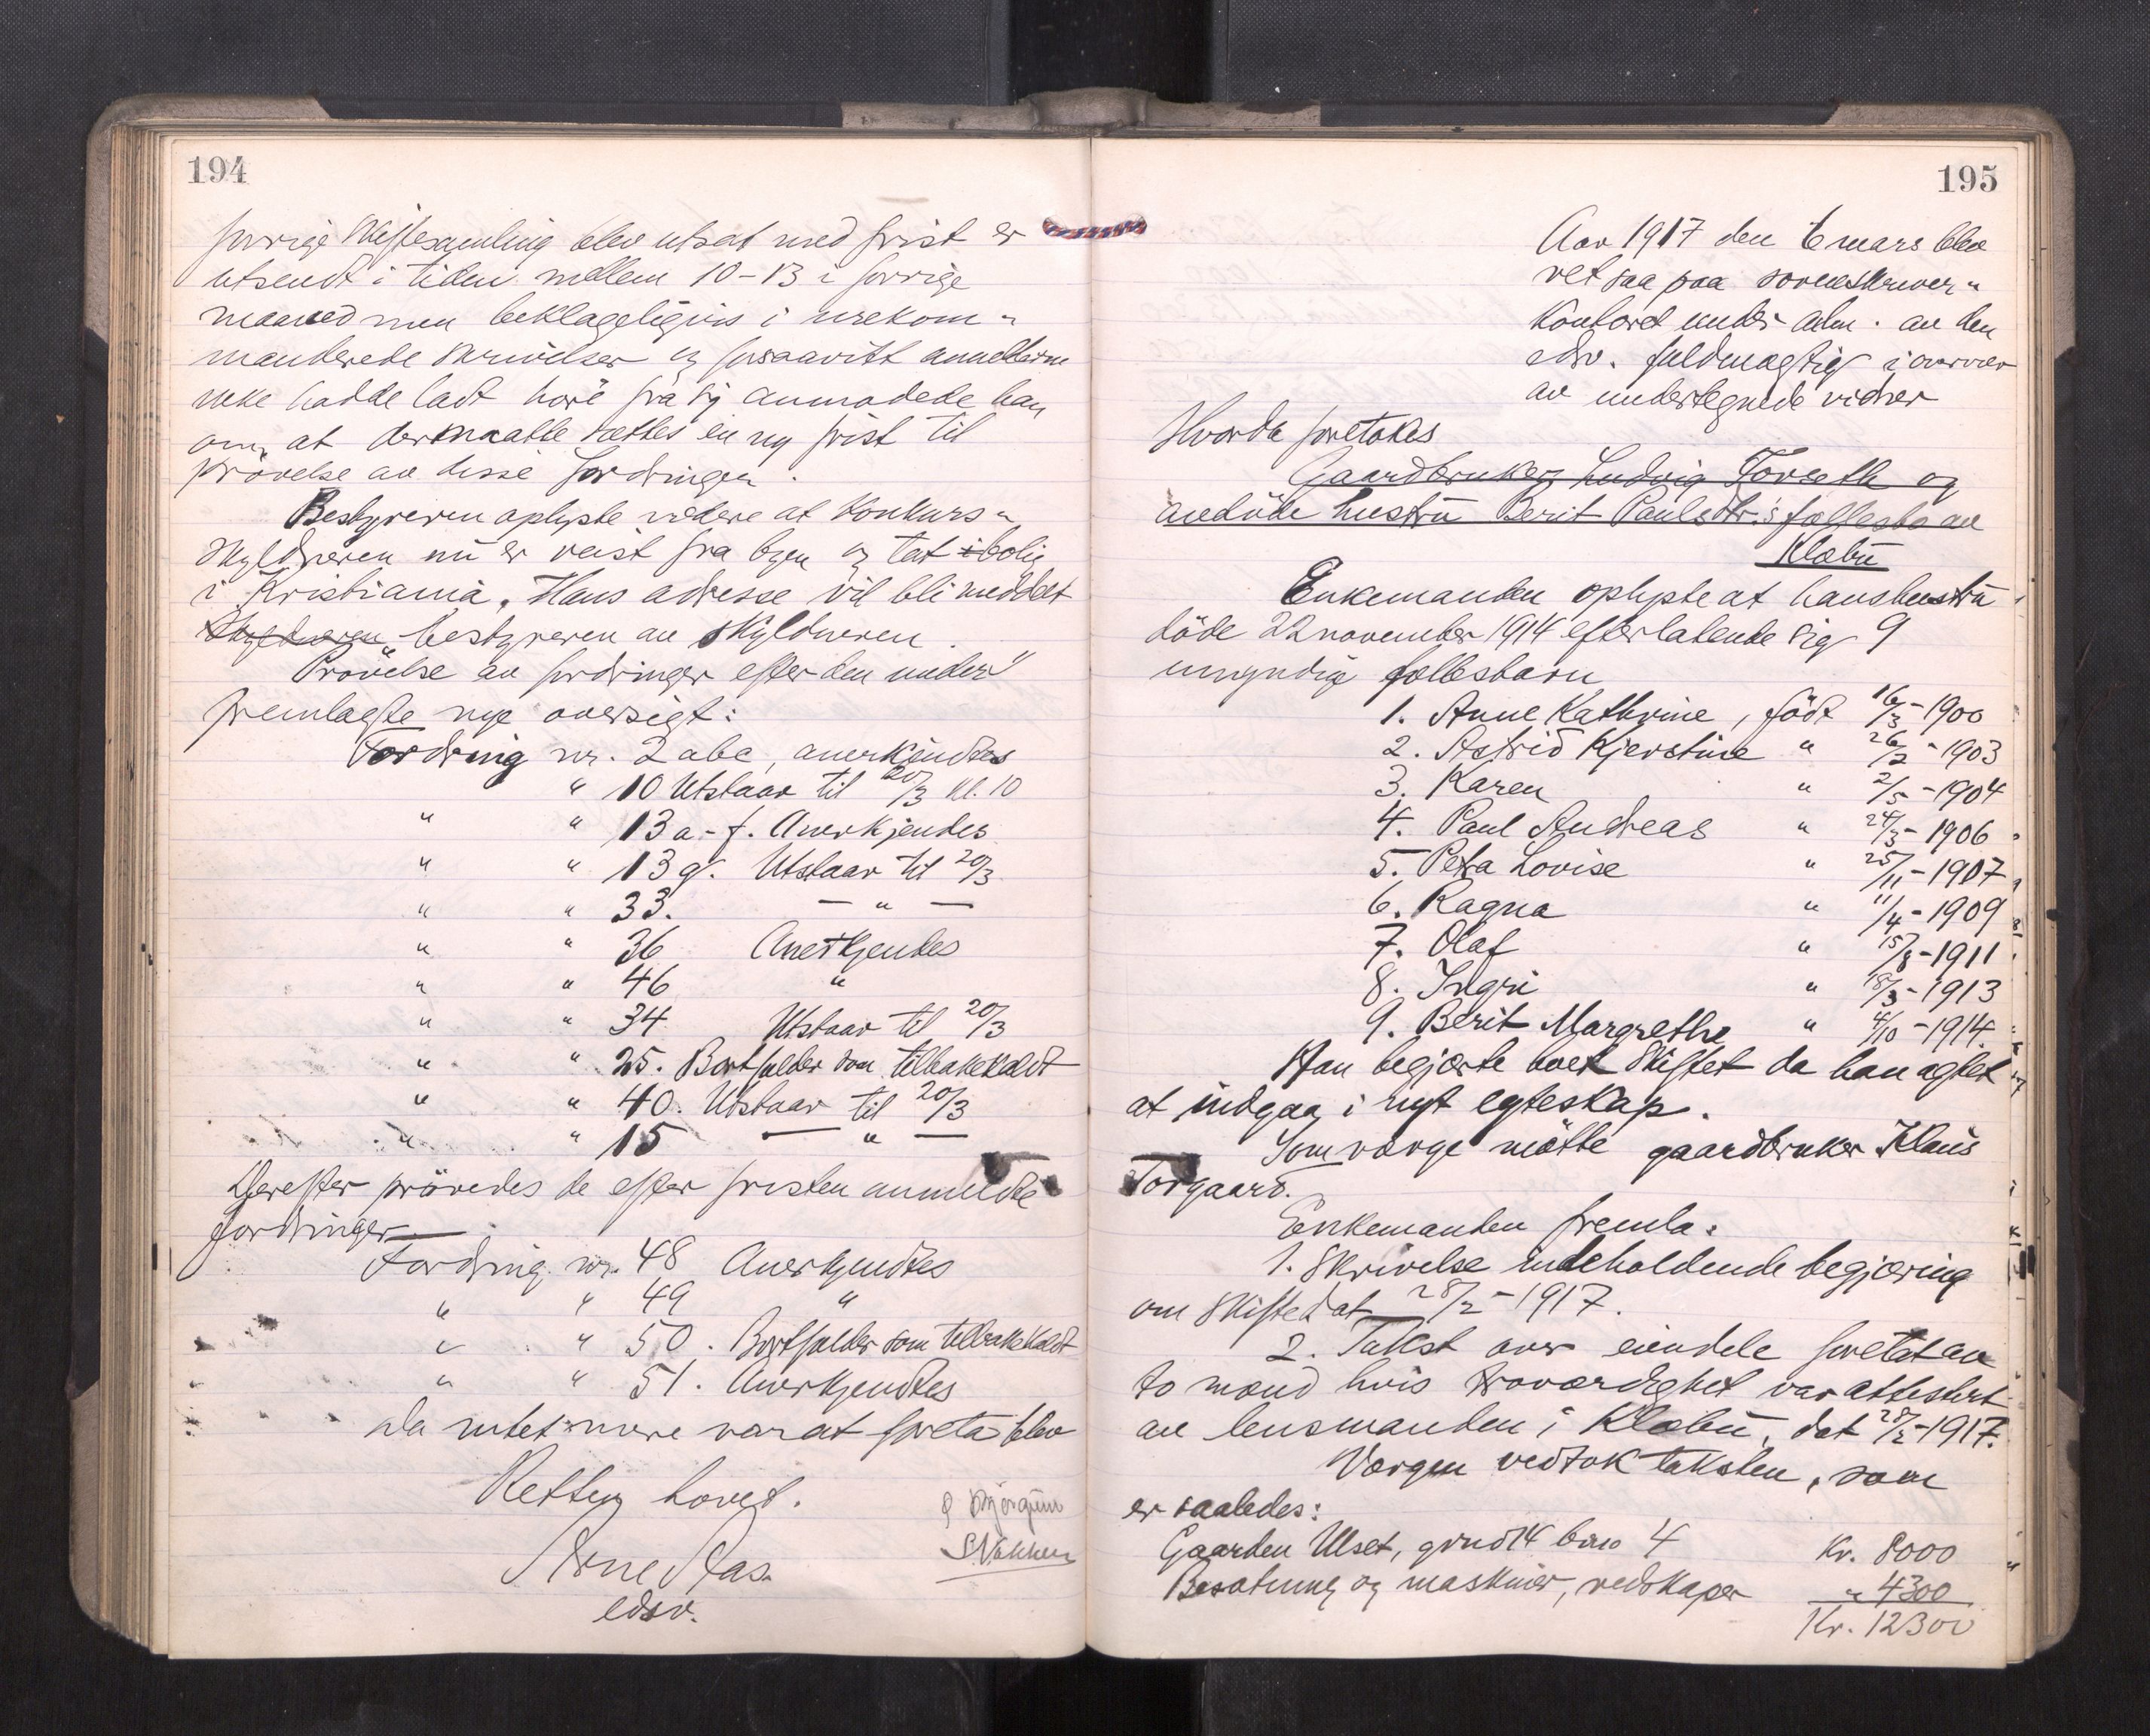 194
forrige skiftesamling blev utsat med frist er
utsendt i tiden mellem 10-13 i forrige
maaned men beklageligvis i urekom-
manderede skrivelser og forsaavitt anmelderne
ikke hadde ladt høre fra sig anmodede han
om, at der maatte sættes en ny frist til
prøvelse av disse fordringer.
Bestyreren oplyste videre at konkurs-
skyldneren nu er reist fra byen og tat bolig
i Kristiania. Hans adresse vil bli meddelt
skyldneren bestyreren av skyldneren.
Prøvelse av fordringer efter den under
fremlagte nye oversigt:
Fordring nr. 2 abc, anerkjendtes
" 10 Utstaar til 20/3 kl. 10
" " 13 a-f. Anerkjendes
" " 13 g. Utstaar til 20/3
" " 33. — " —
" " 36 Anerkjendes
" " 46 "
" " 34 Utstaar til 20/3
" " 25. Bortfalder som tilbakekaldt
" " 40. Utstaar til 20/3
" " 15 — " —
Derefter prøvedes de efter fristen anmeldte
fordringer
Fordring nr. 48 Anerkjendtes
" " 49 "
" " 50. Bortfalder som tilbakekaldt
" " 51. Anerkjendtes
Da intet mere var at foreta blev
Retten hævet.
Arne
edsv.
195
Aar 1917 den 6 mars blev
ret saa paa sorenskriver-
kontoret under adm. av den
edsv. fuldmægtig i overvær
av undertegnede vidner
Hvorda foretokes
Gaardbruker Ludvig Torseth og
avdøde hustru Berit Paulsdtr.'s fællesbo av
Klæbu
Enkemanden oplyste at hans hustru
døde 22 november 1914 efterlatende sig 9
umyndige fællesbarn
1. Anne Kathrine, født 16/3-1900
2. Astrid Kjerstine " 26/2-1903
3. Karen " 2/5-1904
4. Paul Andreas " 24/3-1906
5. Petra Lovise " 25/11-1907
6. Ragna " 11/4-1909
7. Olaf " 15/8-1911
8. Ingri " 18/3-1913
9. Berit Margrethe " 4/10-1914.
Han begjærte boet skiftet da han agtet
at indgaa i nyt egteskap.
Som værge møtte gaardbruker Klaus
Torgaard.
Enkemanden fremla:
1. Skrivelse indeholdende begjæring
om skifte dat 28/2-1917.
2. Takst over eiendele foretat av
to mænd hvis troværdighet var attestert
av lensmanden i Klæbu, dat 28/2-1917.
Værgen vedtok taksten, som
er saaledes:
Gaarden Ulset, gnr 14 bno 4 Kr. 8000
Besætning og maskiner, redskaper " 4300
Kr. 12300